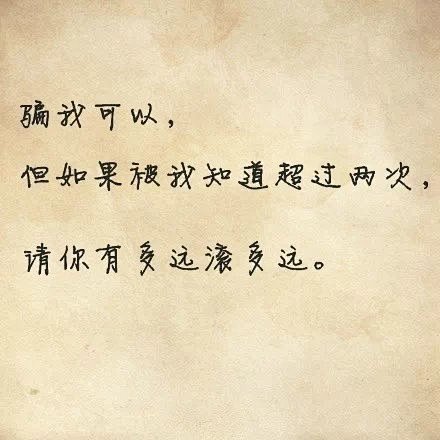 骗我可以，
但如果被我知道超过两次，
请你有多远滚多远。